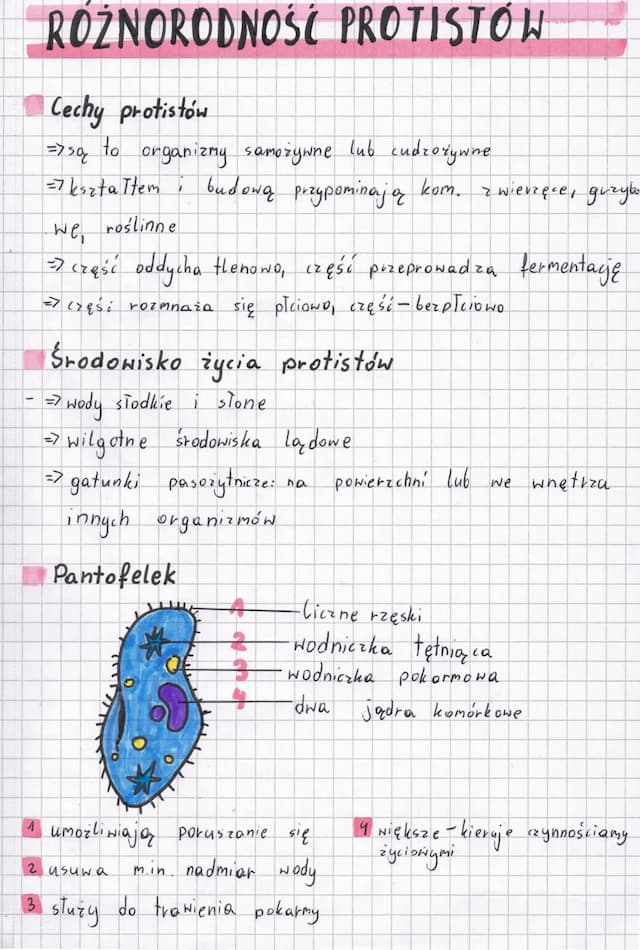 RÓŻNORODNOŚĆ PROTISTÓW
Cechy protistów
=> są to organizmy samożywne lub cudzożywne
=> kształtem i budową przypominają kom. zwierzęce, grzybo
we, roślinne
=> część oddycha tlenowo, część przeprowadza fermentację
=> część rozmnaża się płciowo, część – bezpłciowo
Środowisko życia protistów
- => wody słodkie i słone
=> wilgotne środowiska lądowe
=> gatunki pasożytnicze: na powierzchni lub we wnętrza
innych organizmów
Pantofelek
1 liczne rzęski
2 wodniczka tętniąca
3 wodniczka pokarmowa
4 dwa jądra komórkowe
1 umożliwiają poruszanie się
2 usuwa m.in. nadmiar wody
3 służy do trawienia pokarmy
4 większe – kieruje czynnościamy
życiowymi